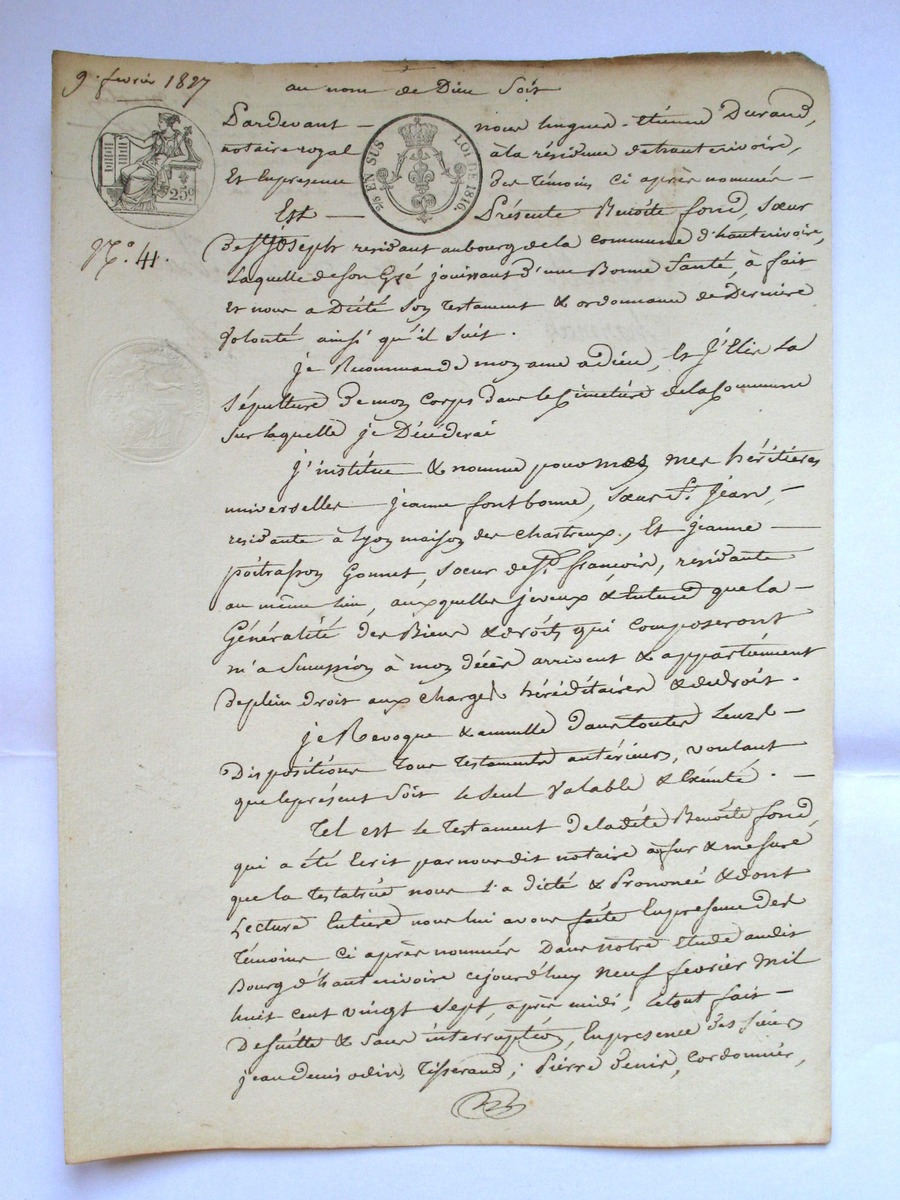 9. fevrier 1827
au nom de Dieu Soit
Pardevant — nous hugues-étienne Durand,
notaire royal à la résidence de hauterivoire,
Et Enpresence des Témoins Ci après nommés —
25 EN SUS LOI DE 1816.
25c.
Est — Présente Benoîte fond, sœur
De St Joseph residant aubourg de la commune d'hauterivoire,
N.o 41.
Laquelle de son Gré jouissant d'une Bonne Santé, à fait
Et nous a Dicté Son Testament & ordonnance de Dernière
Volonté ainsi qu'il Suit.
je Recommande mon ame a dieu, Et J'Elis La
Sépulture De mon Corps Dans le Cimetière dela Commune
Sur laquelle je Décéderai
J'institue & nomme pour mes héritières
universelles jeanne fontbonne, sœur St. Jean, —
residante à Lyon maison des chartreux, Et jeanne —
poitrasson Gonnet, sœur de St. françois, residante
au même lieu, auxquelles je veux & Entend que la —
Généralité des Biens & droits qui composeront
m'a Succession à mon décès arrivent & appartiennent
De plein droit aux charges héréditaires & de droit.
je Revoque & annulle dans toutes Leurs —
Dispositions Tous Testaments antérieurs, voulant
que leprésent Soit le seul Valable & Exécuté. —
Tel est le Testament De ladite Benoîte fond,
qui a été Ecrit par nous dit notaire à fur & mesure
que la Testatrice nous l'a dicté & Prononcé & dont
Lecture Entiere nous lui avons faite Enpresence des
Témoins Ci après nommés Dans notre Etude audit
Bourg d'hauterivoire cejourd'huy neuf fevrier mil
huit cent vingt sept, après midi, letout fait —
De suitte & sans interruption, Enpresence des sieurs
jean denis odin, Tisserand; Pierre Denis, Cordonnier,